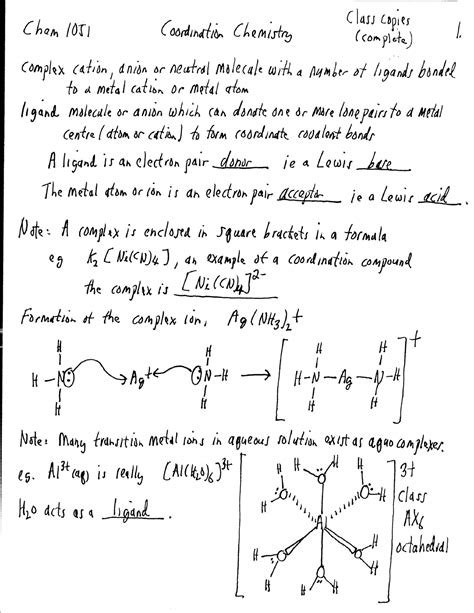 Chem 1051 Coordination Chemistry Class Copies (complete) 1.
complex cation, anion or neutral molecule with a number of ligands bonded
to a metal cation or metal atom
ligand molecule or anion which can donate one or more lone pairs to a metal
centre (atom or cation) to form coordinate covalent bonds
A ligand is an electron pair donor ie a Lewis base
The metal atom or ion is an electron pair acceptor ie a Lewis acid.
Note: A complex is enclosed in square brackets in a formula
eg K₂[Ni(CN)₄], an example of a coordination compound
the complex is [Ni(CN)₄]²⁻
Formation of the complex ion, Ag(NH₃)₂⁺
H H H H +
H-N: Ag⁺ :N-H → [H-N-Ag-N-H]
H H H H
Note: Many transition metal ions in aqueous solution exist as aquo complexes.
eg. Al³⁺(aq) is really [Al(H₂O)₆]³⁺
H₂O acts as a ligand.
H H H H 3+
H O O O H Class
H Al H AX₆
H O O O H octahedral
H H H